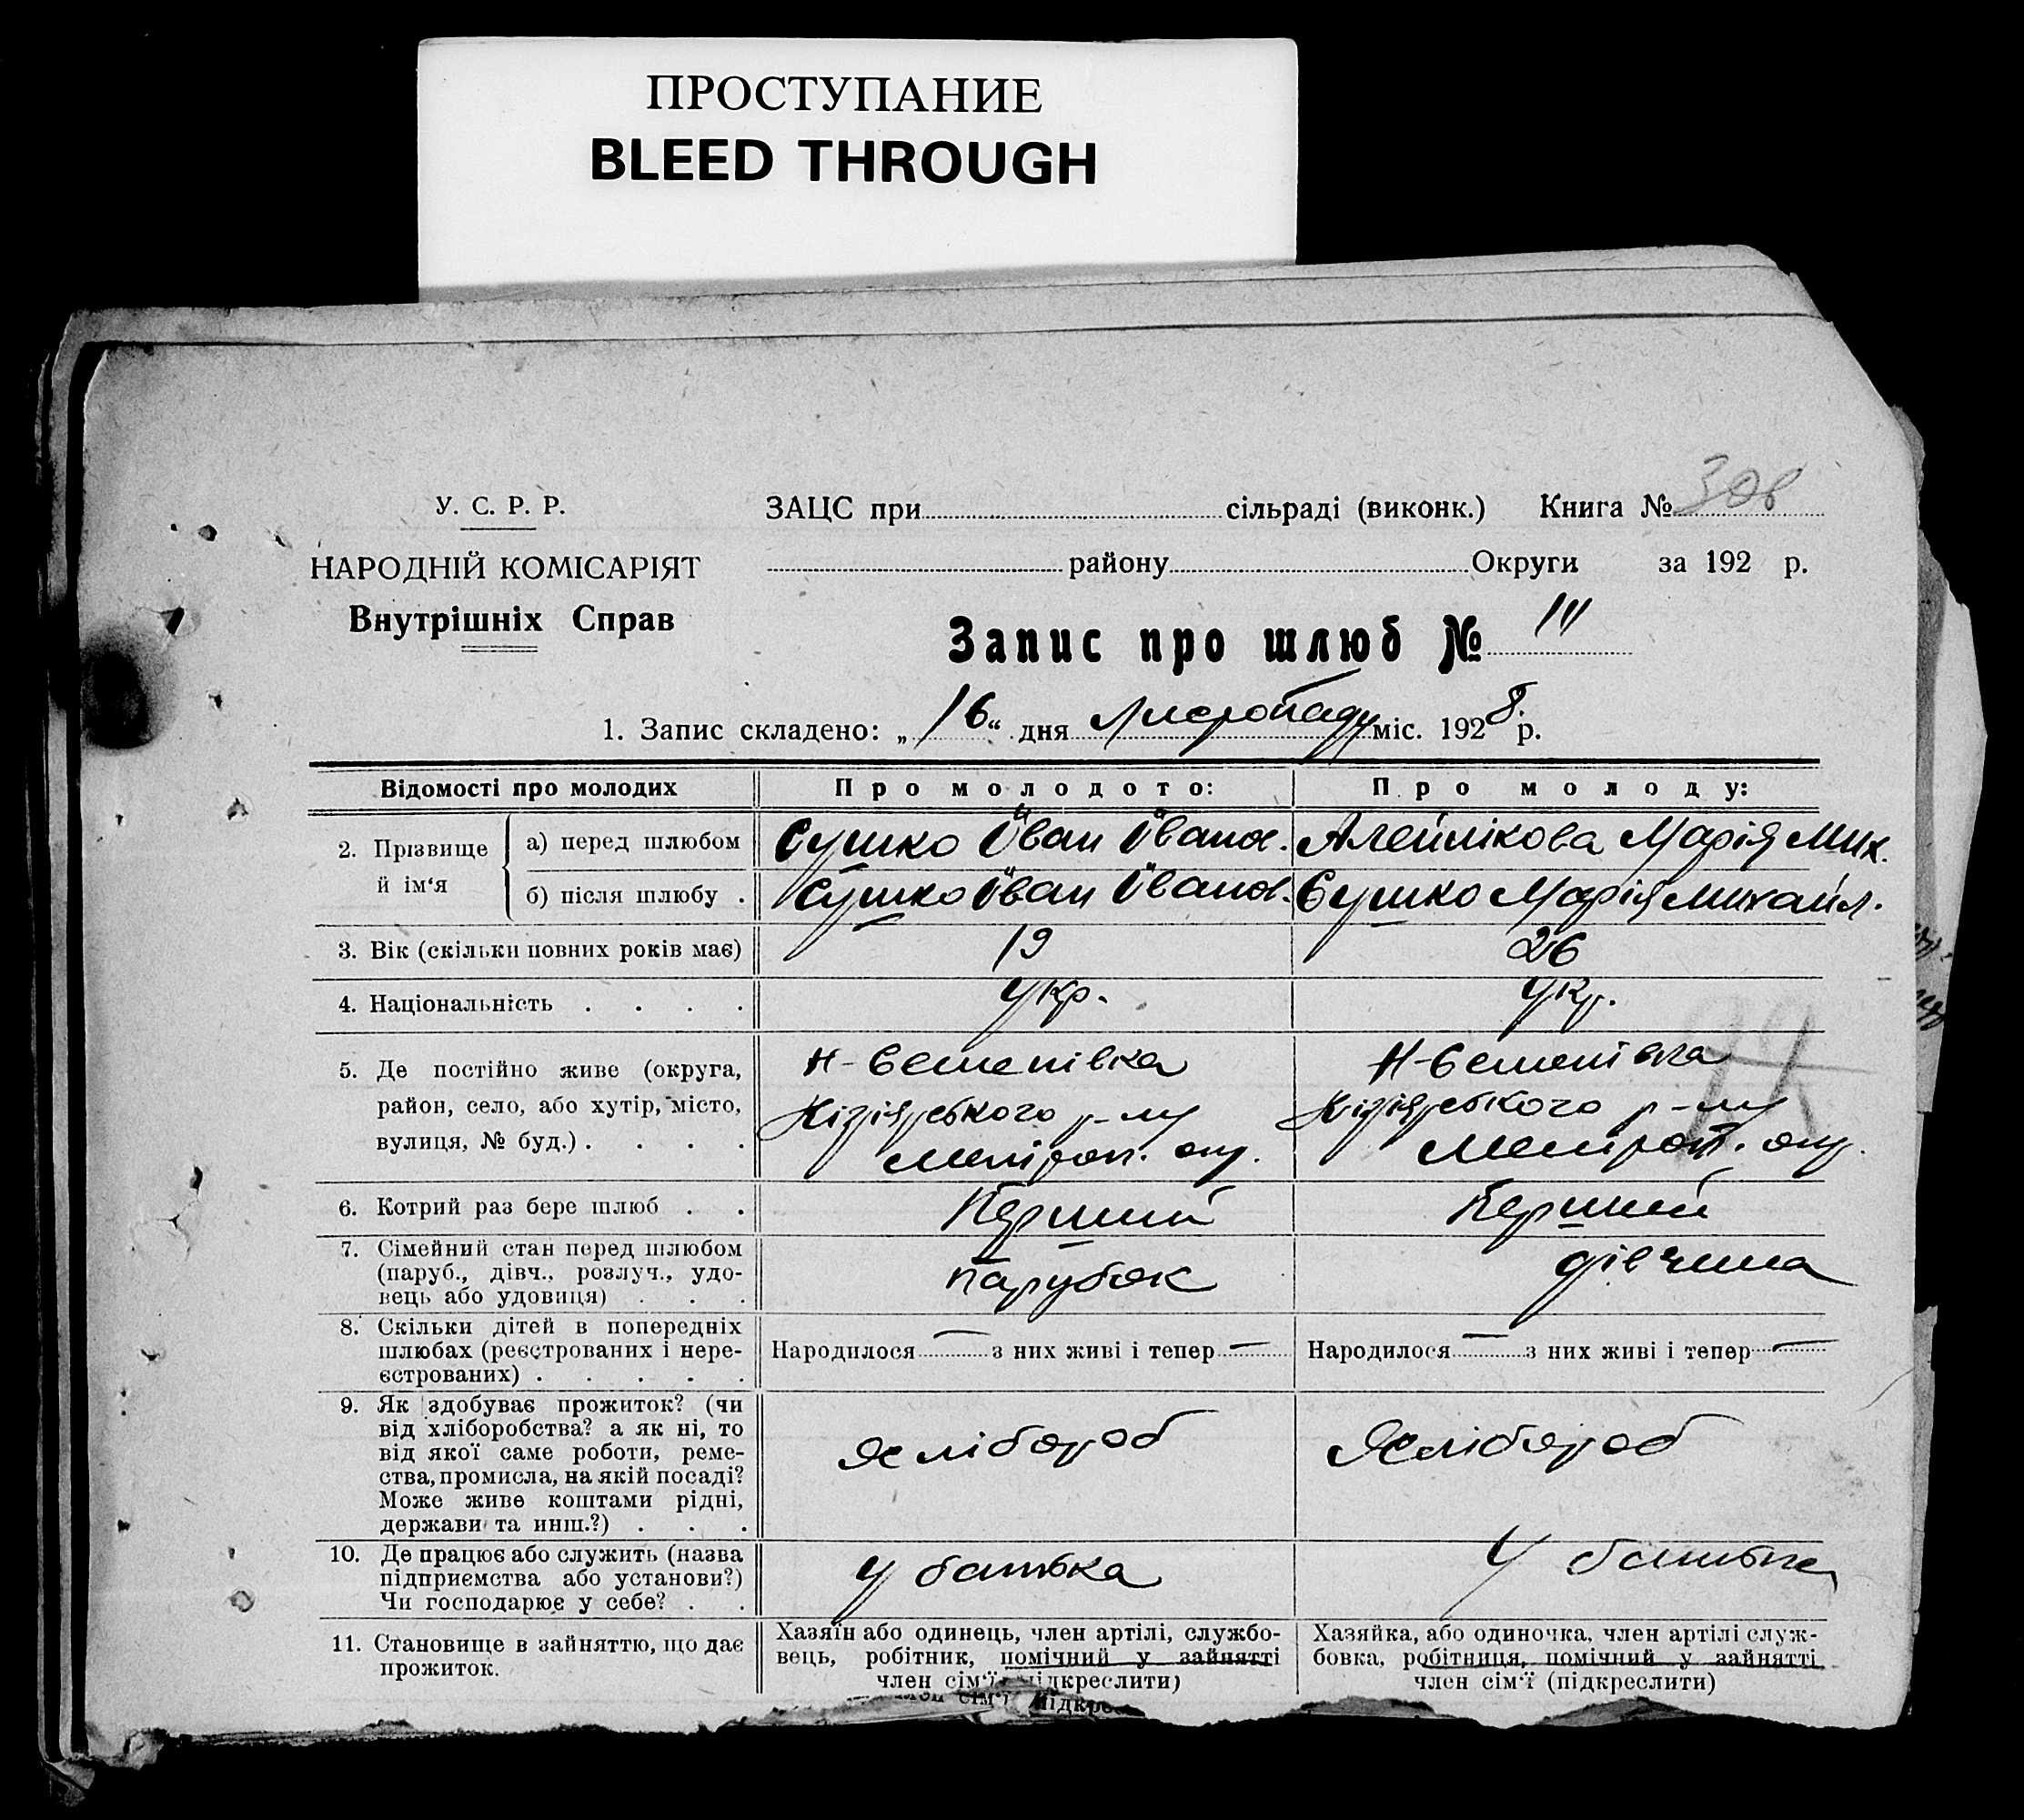 ПРОСТУПАНИЕ
BLEED THROUGH
У. С. Р. Р.
НАРОДНІЙ КОМІСАРІЯТ
Внутрішніх Справ
ЗАЦС при сільраді (виконк.) Книга № 308
району Округи за 192 р.
Запис про шлюб № 111
1. Запис складено: „16“ дня Листопаду міс. 1928 р.
Відомості про молодих Про молодого: Про молоду:
2. Прізвище й ім‘я
а) перед шлюбом Сушко Іван Іванов. Алейнікова Марія Мих.
б) після шлюбу . Сушко Іван Іванов. Сушко Марія Михайл.
3. Вік (скільки повних років має) 19 26
4. Національність . . . . Укр. Укр.
5. Де постійно живе (округа,
район, село, або хутір, місто,
вулиця, № буд.) . . . .
Н-Єменівка
Кізіярського р-ну
Меліроп. окр.
Н-Єменівка
Кізіярського р-ну
Меліроп. окр.
6. Котрий раз бере шлюб . . Перший Перший
7. Сімейний стан перед шлюбом
(паруб., дівч., розлуч., удо-
вець або удовиця) . . .
парубок дівчина
8. Скільки дітей в попередніх
шлюбах (реєстрованих і нере-
єстрованих) . . . . .
Народилося — з них живі і тепер —
Народилося — з них живі і тепер —
9. Як здобуває прожиток? (чи
від хліборобства? а як ні, то
від якої саме роботи, реме-
ства, промисла, на якій посаді?
Може живе коштами рідні,
держави та инш.?) . . .
Хлібороб Хлібороб
10. Де працює або служить (назва
підприємства або установи?)
Чи господарює у себе? . .
У батька У батька
11. Становище в зайняттю, що дає
прожиток.
Хазяїн або одинець, член артілі, службо-
вець, робітник, помічний у зайнятті
член сім‘ї (підкреслити)
Хазяйка, або одиночка, член артілі служ-
бовка, робітниця, помічний у зайнятті
член сім‘ї (підкреслити)